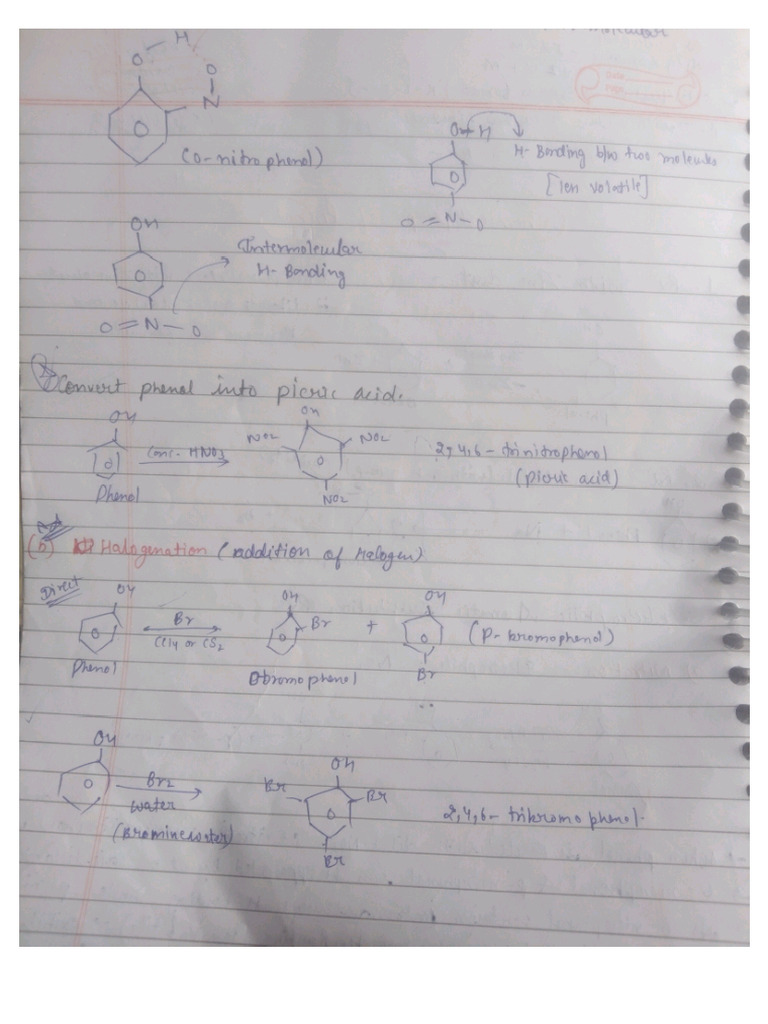 O - H
O
N
(o-nitrophenol)
OH - H
H-Bonding b/w two molecules
[less volatile]
O = N - O
OH
Intermolecular
H-Bonding
O = N - O
Convert phenol into picric acid.
OH
Conc. HNO3
Phenol
OH
NO2
NO2
NO2
2,4,6-trinitrophenol
(picric acid)
(b) Halogenation (addition of Halogen)
Direct
OH
Br
CCl4 or CS2
Phenol
OH
Br
Obromophenol
+
OH
Br
(p-bromophenol)
OH
Br2
water
(Brominewater)
OH
Br
Br
Br
2,4,6-tribromophenol.